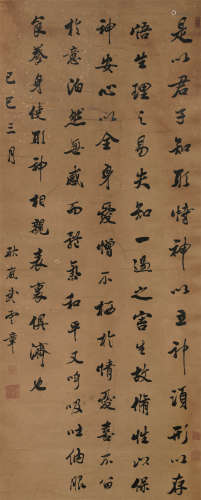 是以君子知形恃神以立神須形以存
悟生理之易失知一過之害生故脩性以保
神安心以全身愛憎不栖於情憂喜不留
於意泊然無感而體氣和平又呼吸吐納服
食養身使形神相親表裏俱濟也
己巳三月